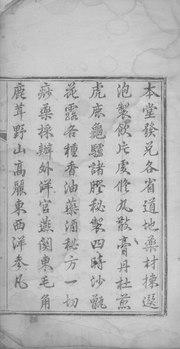 本堂發兌各省道地藥材揀選
泡製飲片虔修丸散膏丹杜煎
虎鹿龜驢諸膠秘製四時沙甑
花露各種香油藥酒秘方一切
痧藥採辦外洋官燕關東毛角
鹿茸野山高麗東西洋參凡